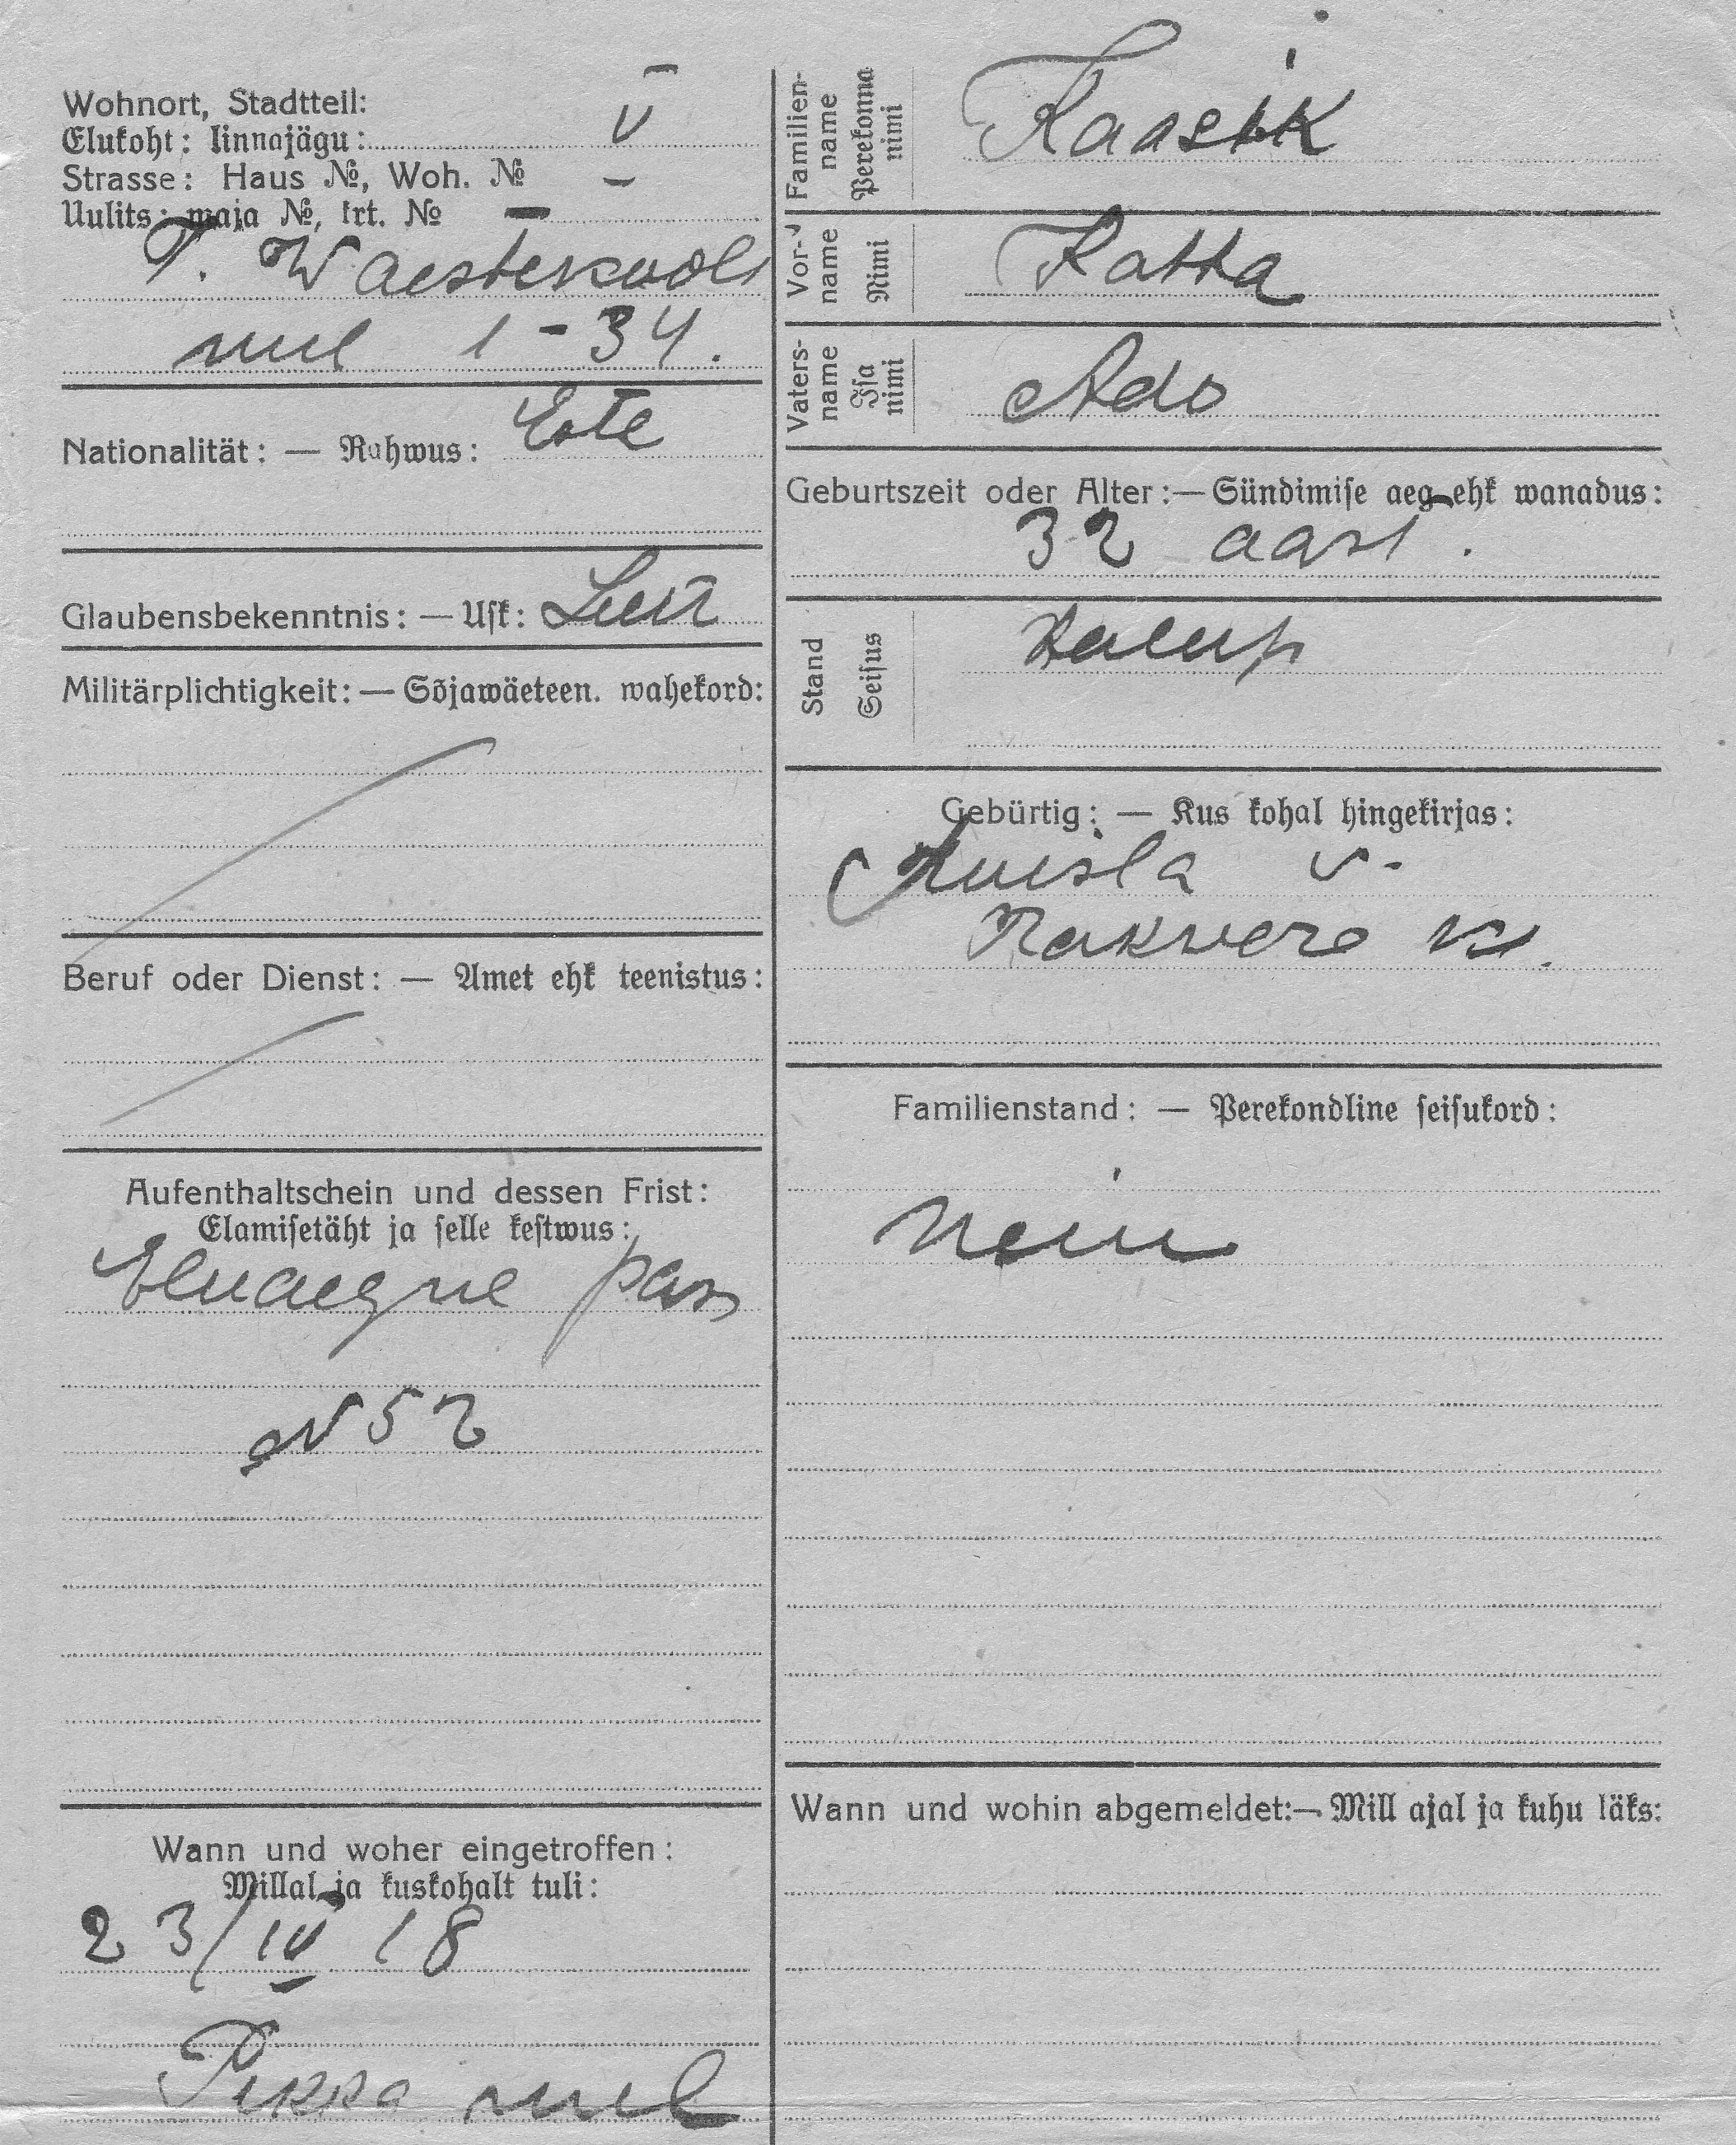 Wohnort, Stadtteil:
Elukoht: linnajägu: V
Strasse: Haus №, Woh. №
Uulits: maja №, krt. №
1-34.
Nationalität: — Rahwus: Este
Glaubensbekenntnis: — Usk:
Militärplichtigkeit: — Sõjawäeteen. wahekord:
Beruf oder Dienst: — Amet ehk teenistus:
Aufenthaltschein und dessen Frist:
Elamisetäht ja selle kestwus:
Eluaegne pass
N 52
Wann und woher eingetroffen:
Millal ja kuskohalt tuli:
23/IV 18
Pikka
Familien-
name
Perekonna
nimi
Kaasik
Vor-
name
Nimi
Katta
Vaters-
name
Isa
nimi
Ado
Geburtszeit oder Alter: — Sündimise aeg ehk wanadus:
32 aast.
Stand
Seisus
Talup
Gebürtig: — Kus kohal hingekirjas:
v.
Rakvere
Familienstand: — Perekondline seisukord:
Wann und wohin abgemeldet: — Mill ajal ja kuhu läks: